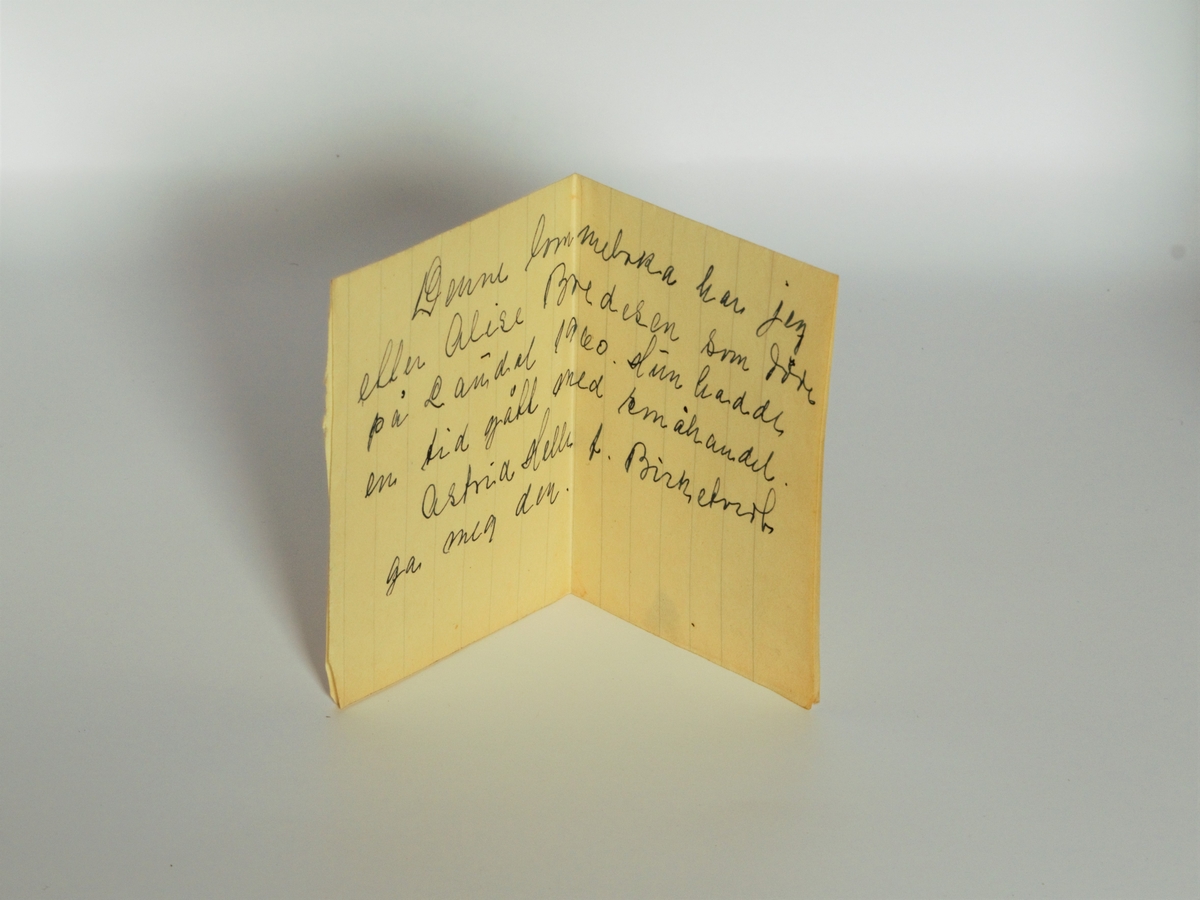 Denne lommeboka har jeg
etter Alise Bredesen som døde
på Landal 1960. Hun hadde
en tid gått med småhandel.
Astrid Helle f. Birketvedt
ga meg den.